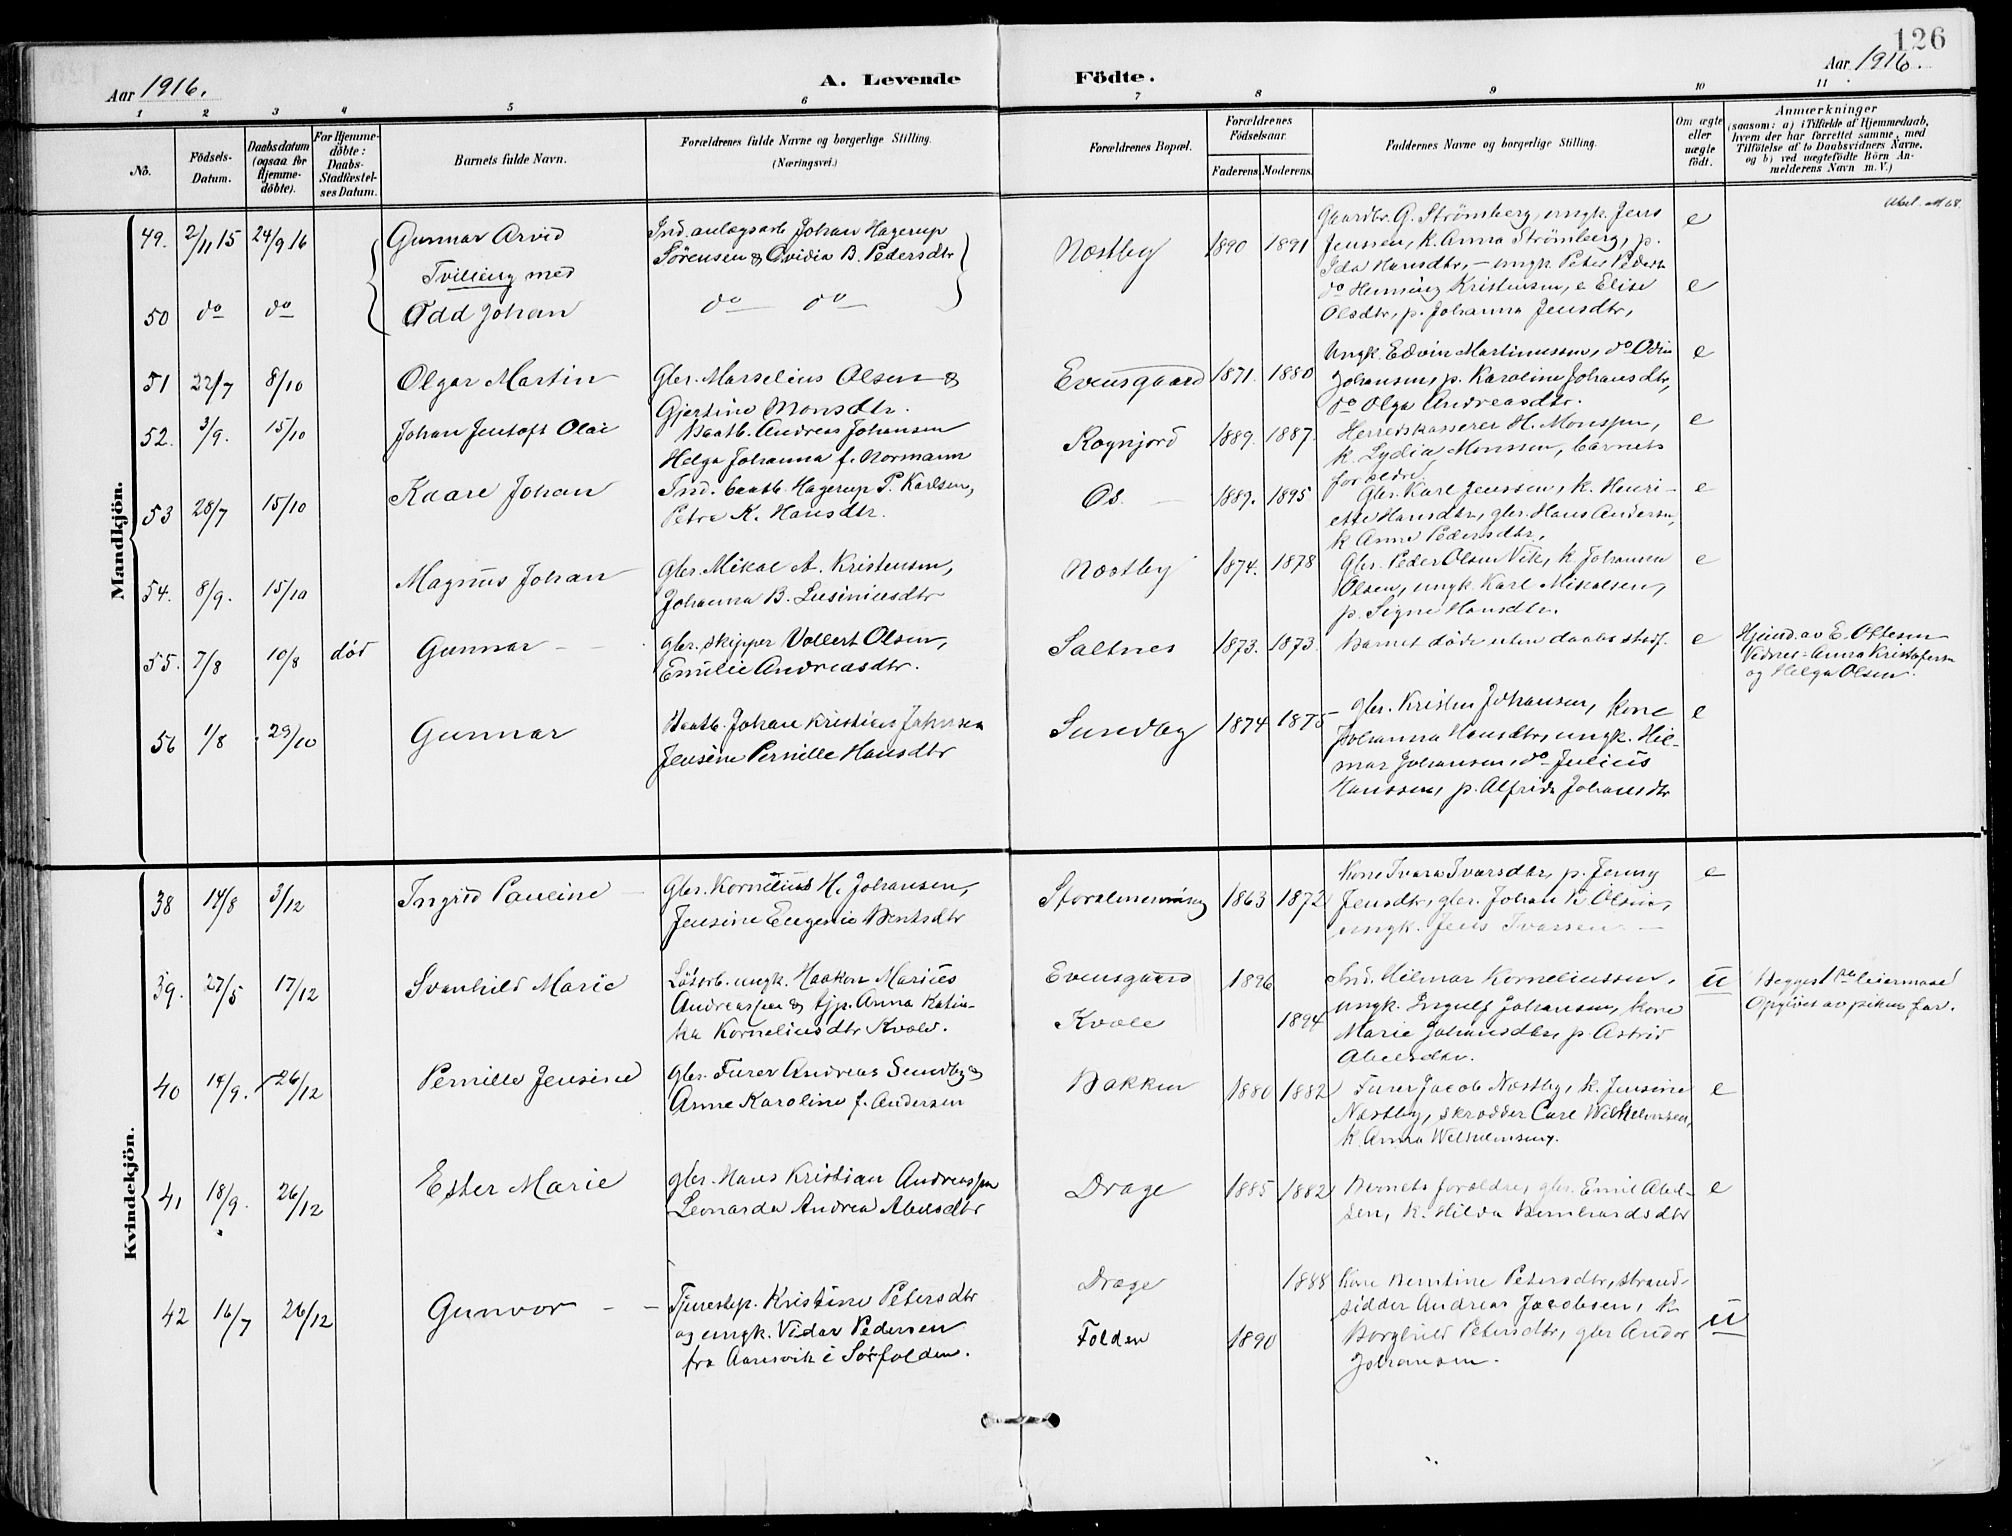 126
Aar 1916.
A. Levende
Födte.
Aar 1916.
1 2 3 4 5 6 7 8 9 10 11
No.
Födsels-Datum.
Daabsdatum (ogsaa for Hjemme-döbte).
For Hjemme-döbte: Daabs-Stadfæstel-ses Datum.
Barnets fulde Navn.
Forældrenes fulde Navne og borgerlige Stilling.
(Næringsvei.)
Forældrenes Bopæl.
Forældrenes Födselsaar.
Faderens. Moderens.
Faddernes Navne og borgerlige Stilling.
Om ægte eller uægte födt.
Anmærkninger
(saasom: a) i Tilfælde af Hjemmedaab,
hvem der har forrettet samme, med
Tilföielse af to Daabsvidners Navne,
og b) ved uægtefödte Börn An-
melderens Navn m. V.)
Mandkjön.
49. 2/11 15 24/9 16 Gunnar Arvid
Tvilling med
Ind. anlægsarb Johan Hagerup
Sörensen & Ovidia B. Pedersdtr
Næstby 1890 1891
Gaardbr. G. Strömberg, ungk. Jens
Jenssen, k. Anna Strömberg, p.
Ida Hansdtr, – ungk. Peter Peders
e
50 do do Odd Johan
do do
do Henning Kristensen, e Elise
Olsdtr, p. Johanna Jensdtr,
e
51 22/7 8/10 Olgar Martin
Gbr. Marselius Olsen &
Gjertine Monsdtr.
Evensgaard 1871. 1880
Ungk. Edvin Martinussen, do Odin
Johansen, p. Karoline Johansdtr,
do Olga Andreasdtr.
e
52. 3/9. 15/10 Johan Jentoft Olai
Baatb. Andreas Johansen
Helga Johanna f. Normann
Rognjord 1889. 1887.
Herredskasserer H. Monssen,
k. Lydia Monssen, barnets
forældre.
e
53 28/7 15/10 Kaare Johan
Ind. baatb. Hagerup P. Karlsen,
Petra K. Hansdtr.
Os. – 1889. 1895
Gbr. Karl Jenssen, k. Henri-
ette Hansdtr, gbr. Hans Andersen,
k Anne Pedersdtr,
e
54. 8/9. 15/10 Magnus Johan
Gbr. Mikal A. Kristensen,
Johanna B. Lusiniusdtr
Næstby 1874. 1878
Gbr. Peder Olsen Vik, k Johansen
Olsen, ungk. Karl Mikalsen,
p. Signe Hansdtr.
e
55. 7/8 10/8 död Gunnar – –
gbr. skipper Vollert Olsen,
Emilie Andreasdtr.
Saltnes 1873. 1873.
Barnet döde uten daabs stadf.
e
Hjemd. av E. Ottesen
Vidner: Anna Kristofersen
og Helga Olsen.
56 1/8 29/10 Gunnar
Baatb. Johan Kristian Johnsen
Jensine Pernille Hansdtr
Sundby 1874 1875
gbr. Kristen Johansen, kone
Johanna Hansdtr, ungk. Hil-
mar Johansen, do Julius
Hanssen, p. Alfrida Johansdtr
e
Kvindekjön.
38 14/8 3/12 Ingrid Pauline –
Gbr. Kornelius H. Johansen,
Jensine Eugenie Bentsdtr
Storalmenning 1863 1872
Kone Ivara Ivarsdtr, p. Jenny
Jensdtr, gbr. Johan K Olsen,
ungk. Jens Ivarsen –
e
39. 27/5 17/12 Svanhild Marie
Lösarb. ungk. Haakon Marius
Andreassen & tjp. Anna Katin-
ka Korneliusdtr Kvale.
Evensgaard 1896
Kvale 1894
Ind. Hilmar Korneliussen,
ungk. Ingulf Johansen, kone
Marie Johansdtr, p. Astrid
Abelsdtr.
u
Begges 1ste leiermaal
Opgivet av pikens far.
40 14/9. 26/12 Pernille Jensine
gbr. Furer Andreas Sundby &
Anne Karoline f. Andersen
Bakken 1880 1882
Furer Jacob Næstby, k. Jensine
Næstby, skrædder Carl Wilhelmsen,
k. Anna Wilhelmsen.
e
41 18/9. 26/12 Ester Marie
gbr. Hans Kristian Andreassen
Leonarda Andrea Abelsdtr
Drage 1885 1882
Barnets forældre, gbr. Emil Abel-
sen, k. Hilda Bernhardsdtr
e
42 16/7 26/12 Gunvor – –
Tjenestep. Kristine Petersdtr
og ungk. Vidar Pedersen
fra Aanesvik i Sörfolden.
Drage 1888
Folden 1890
Kone Berntine Petersdtr, strand-
sidder Andreas Jacobsen, k.
Borghild Petersdtr, gbr Andor
Johansen.
u